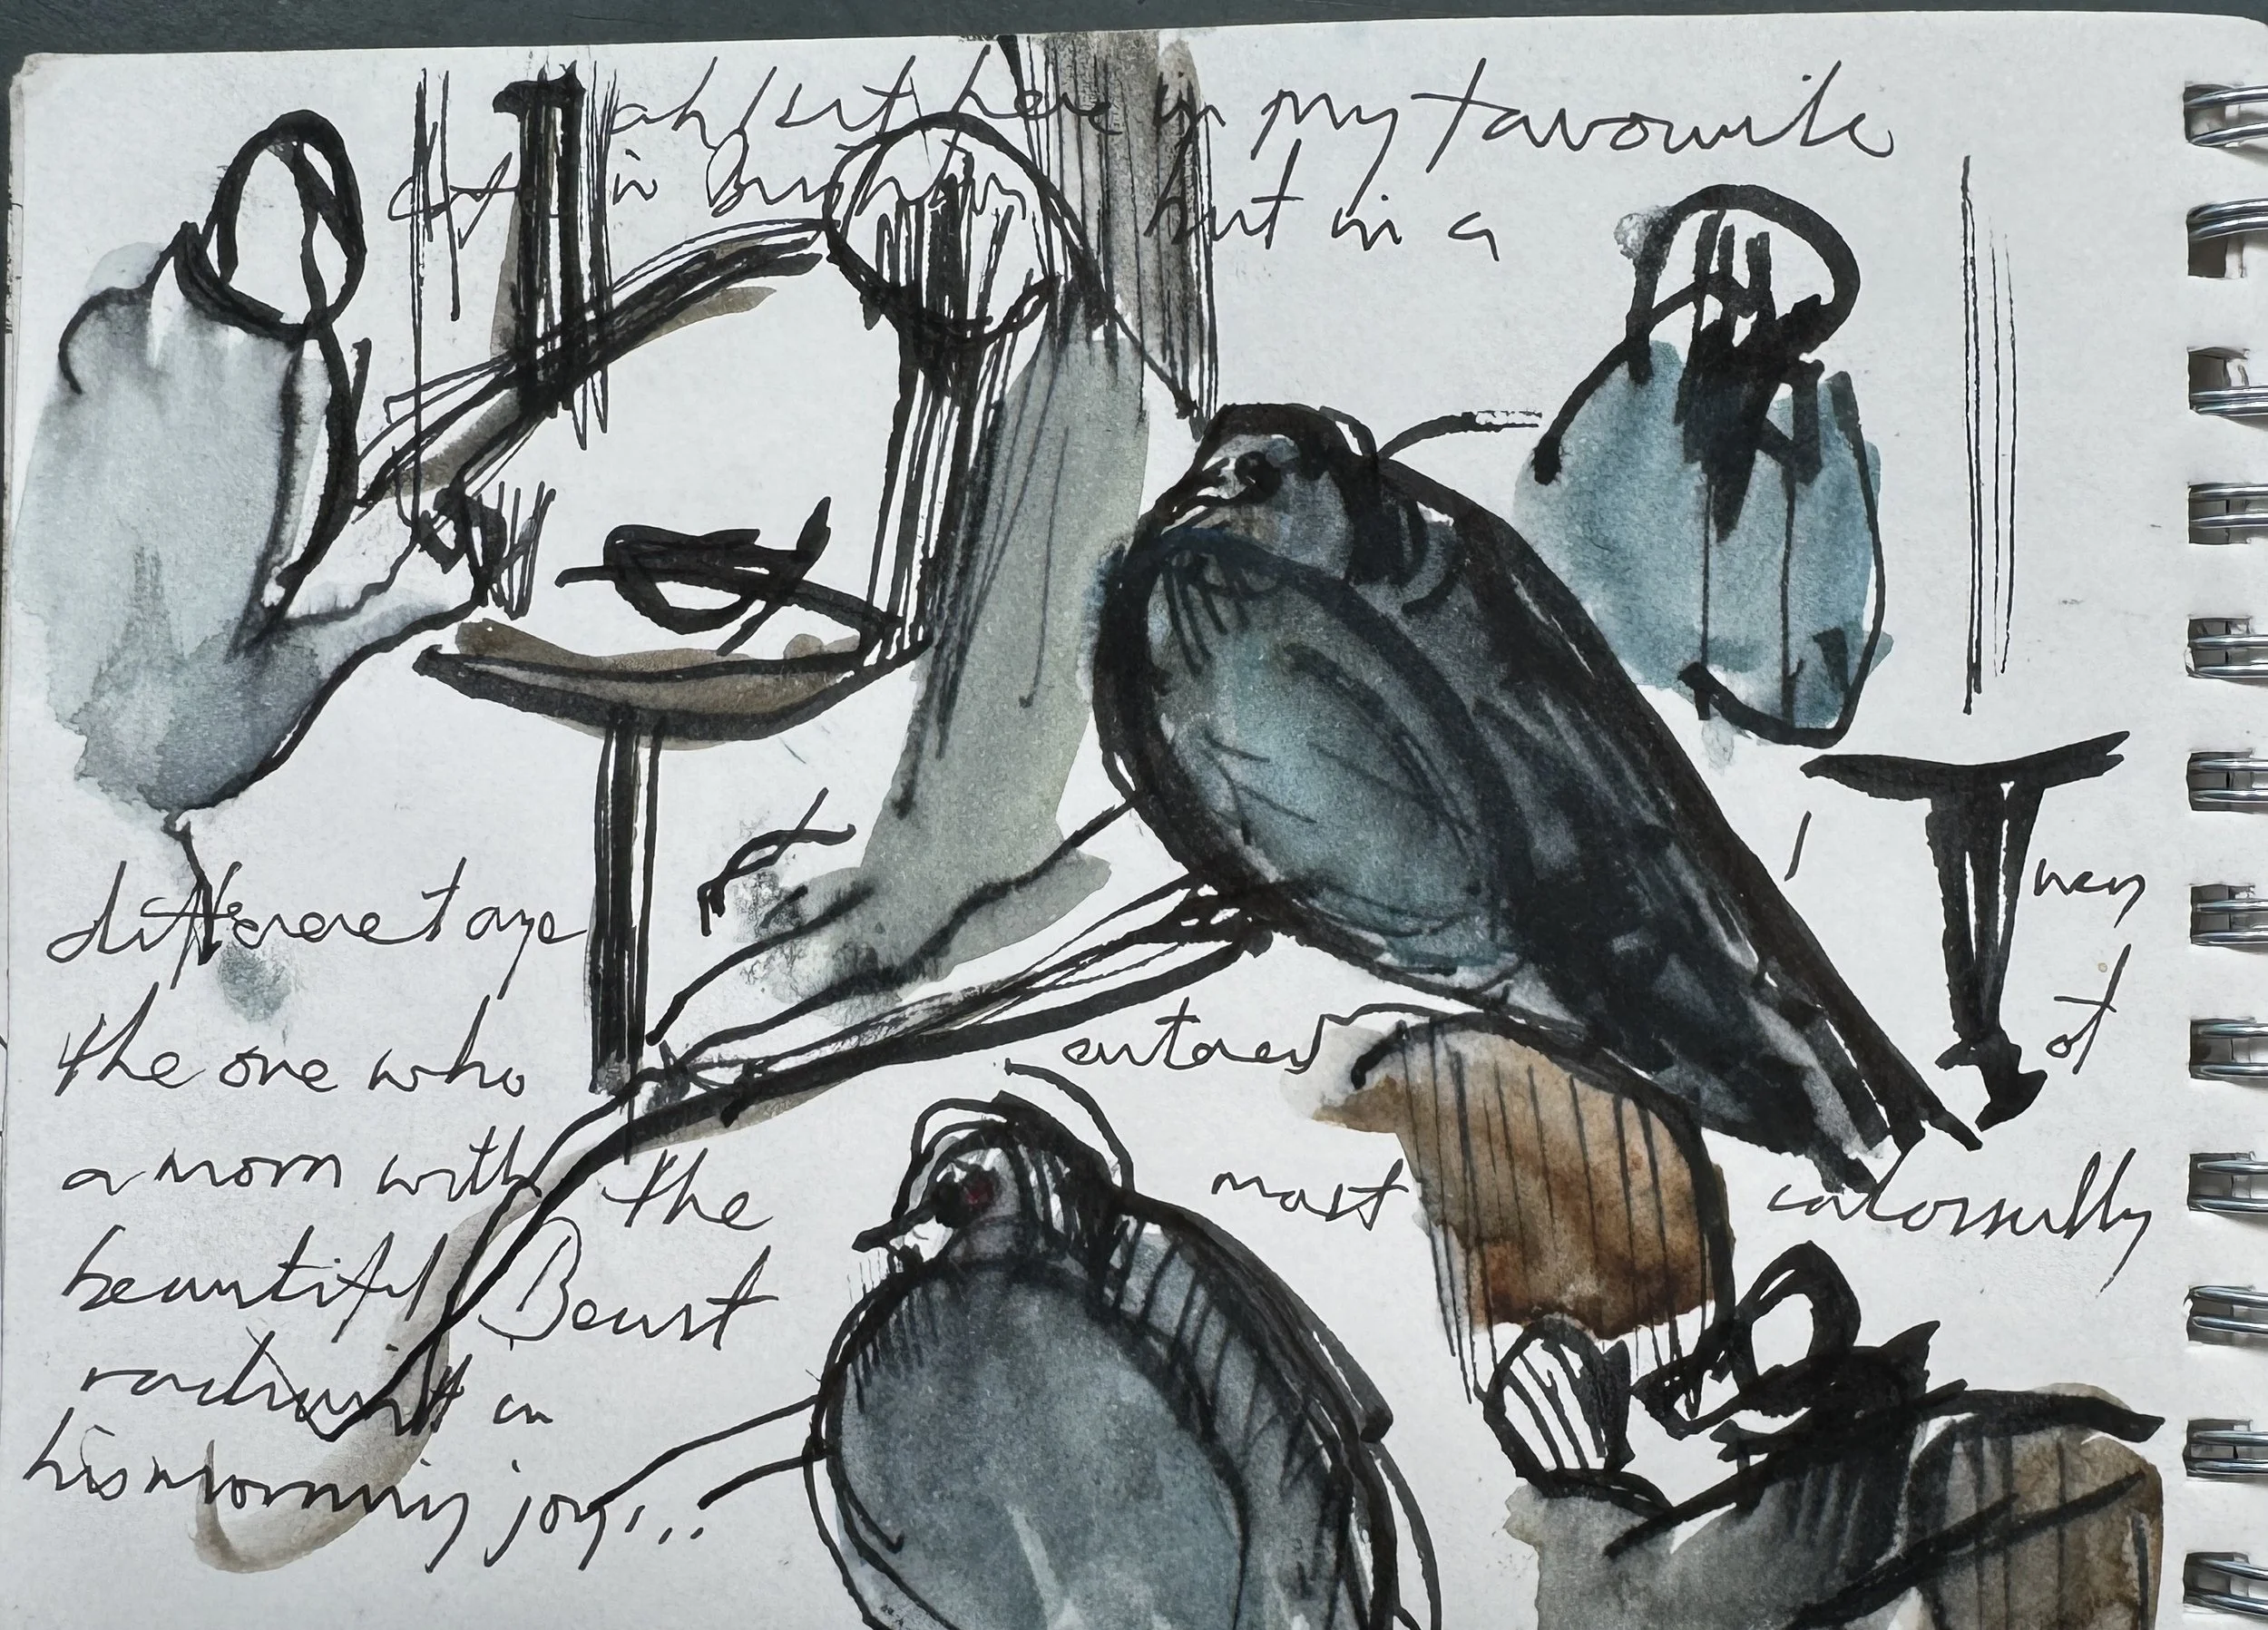 ah I sit here in my favourite
in but in a
different age
the one who
a morn with the
beautiful Beast
in
his morning joy...
I
of
entered
most colossally